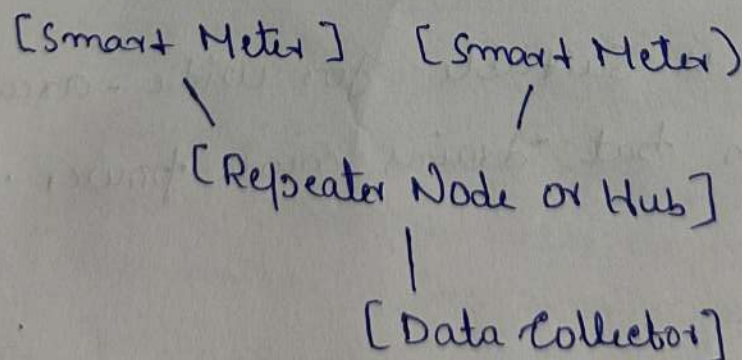 [Smart Meter] [Smart Meter)
[Repeater Node or Hub]
[Data Collector]